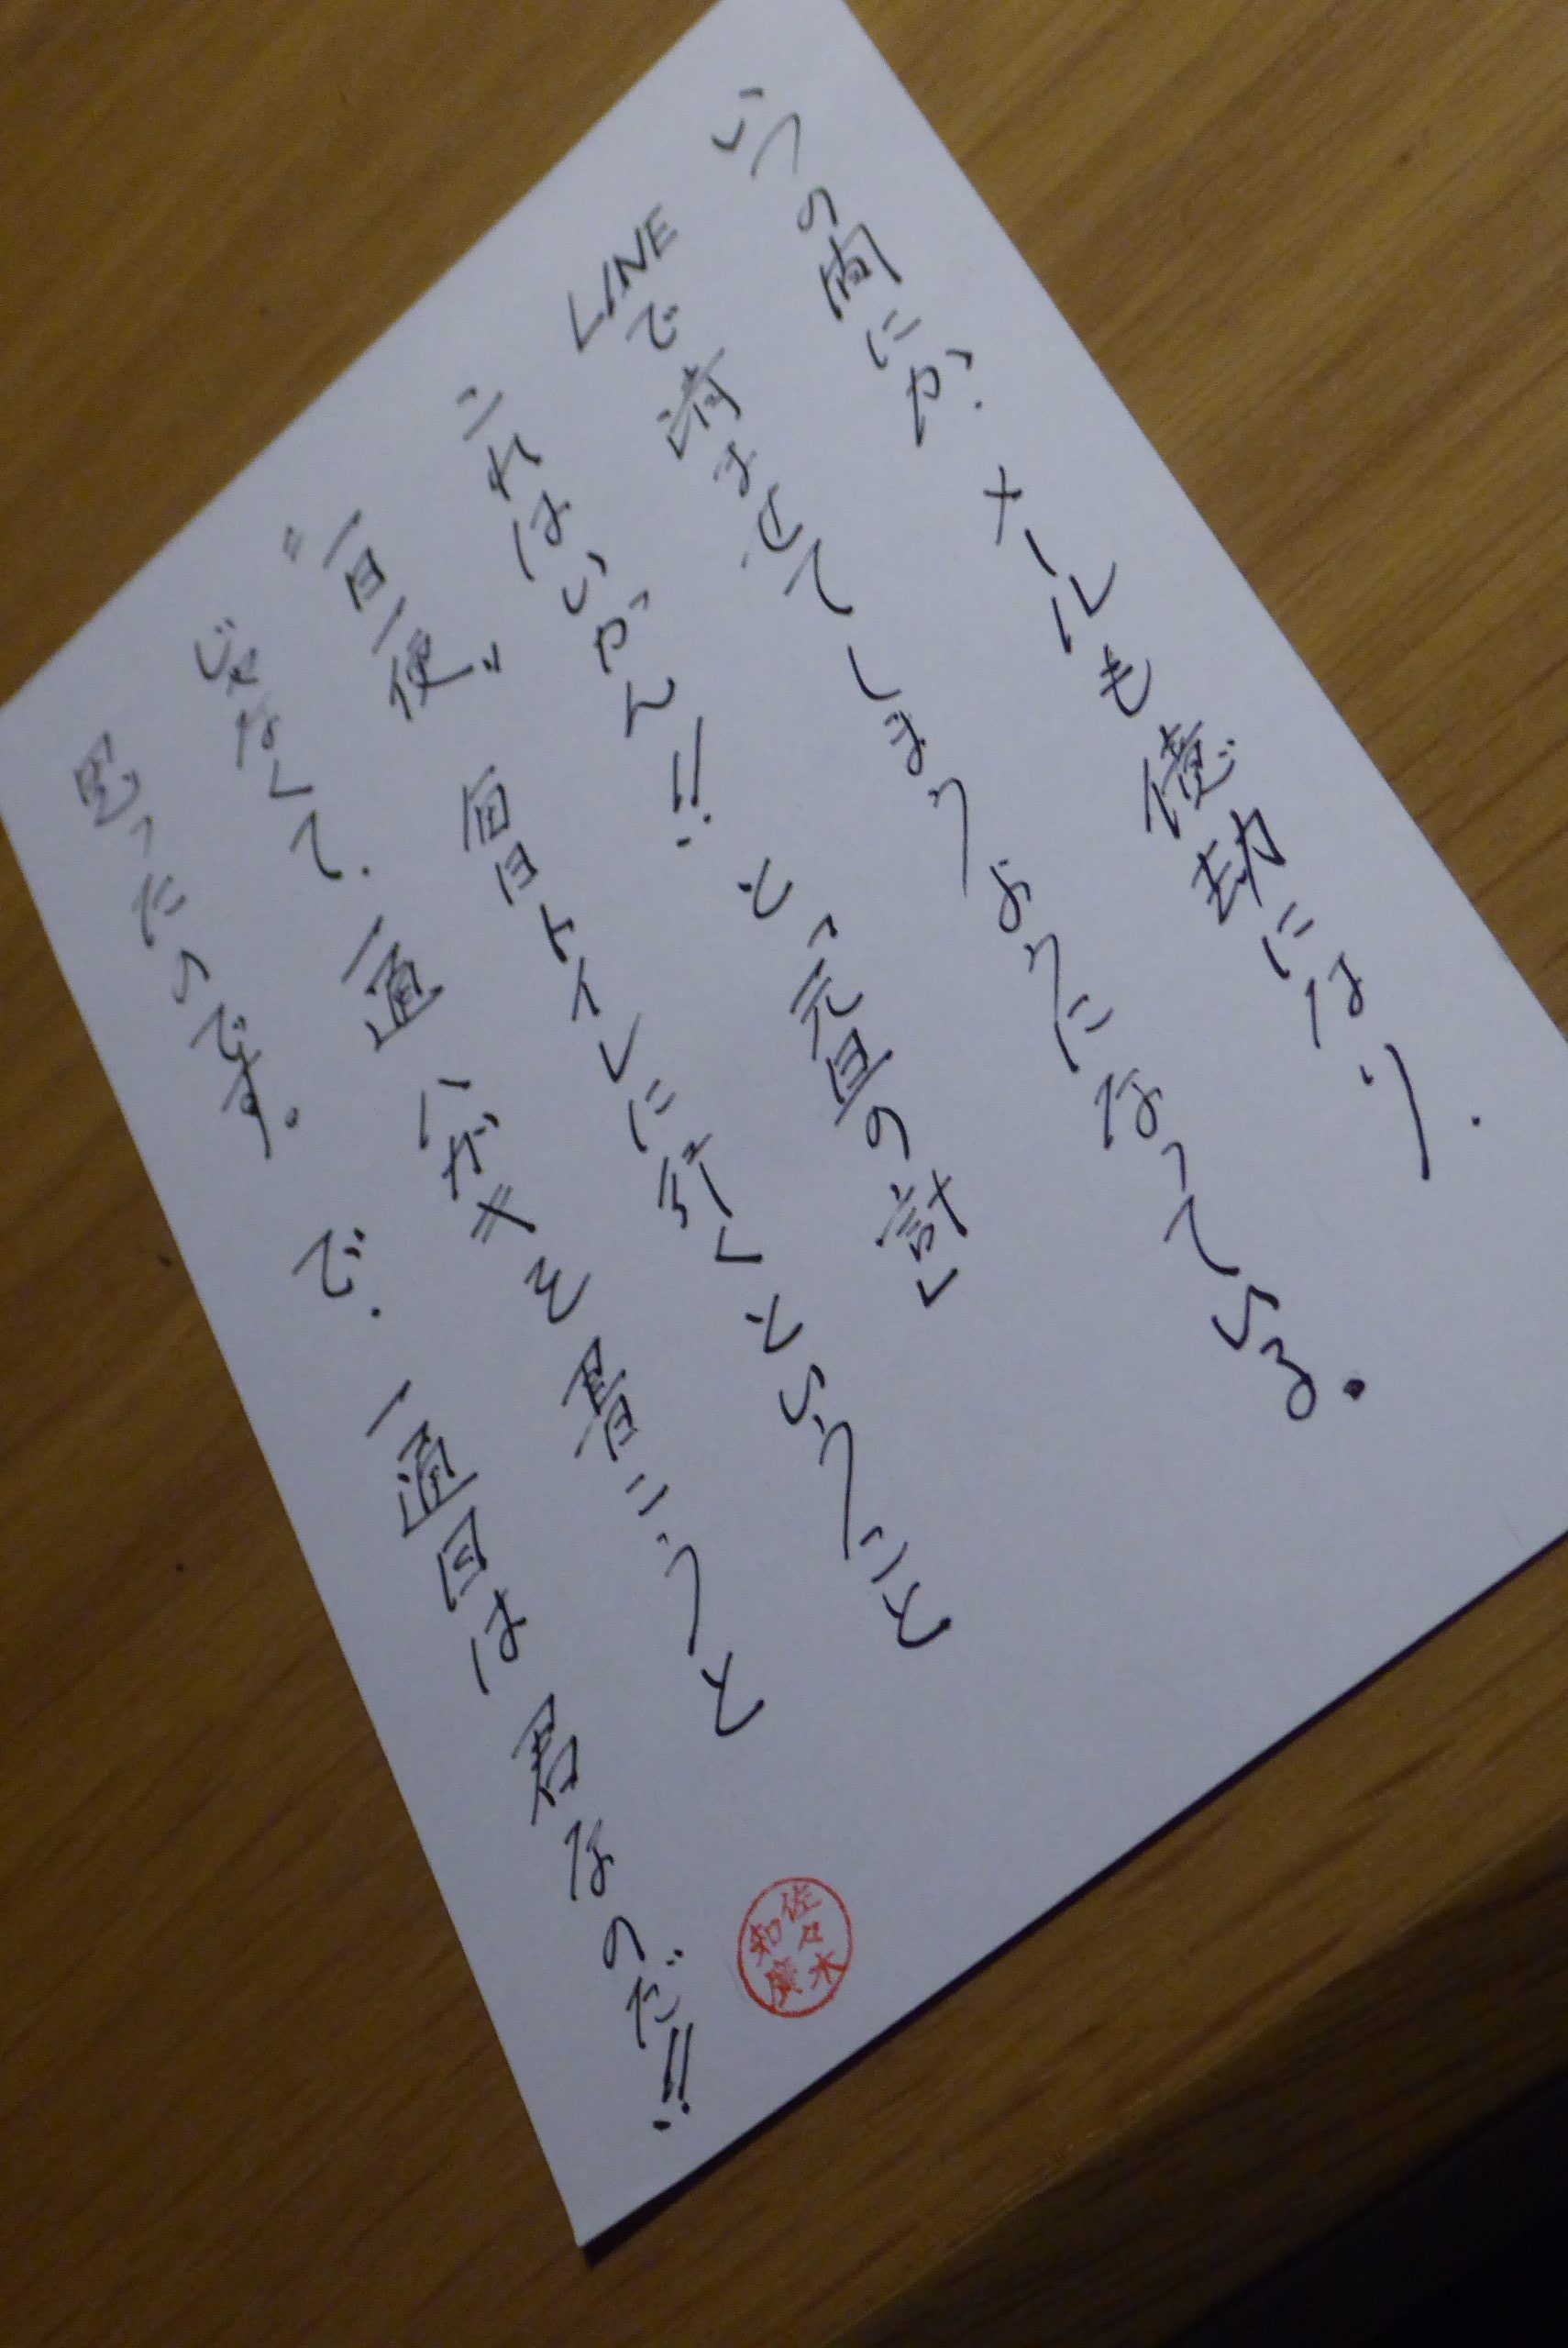 いつの間にか、メールも億劫になり、
LINEで済ませてしまうようになっている。
これはいかん!! と「元旦の計」
"一日一便" 毎日トイレに行くということ
じゃなくて、一通 ハガキを書こうと
思ったのです。で、一通目は君なのだ!!
佐々木
知廣